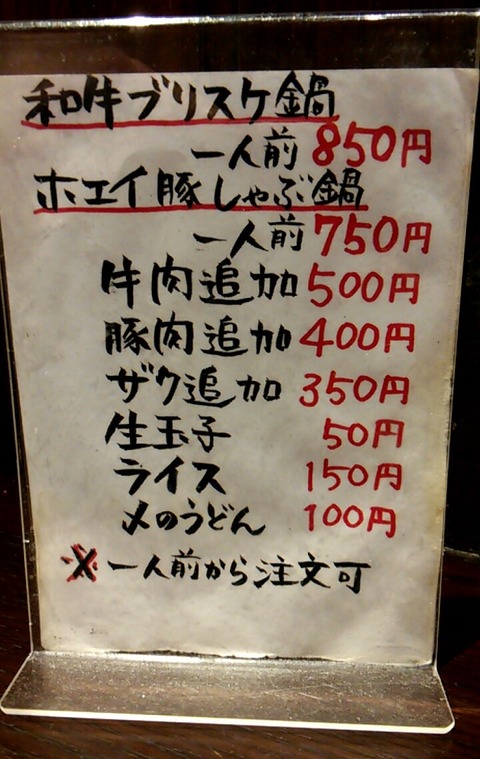 和牛ブリスケ鍋
一人前 850円
ホエイ豚しゃぶ鍋
一人前 750円
牛肉追加 500円
豚肉追加 400円
ザク追加 350円
生玉子 50円
ライス 150円
〆のうどん 100円
※一人前から注文可